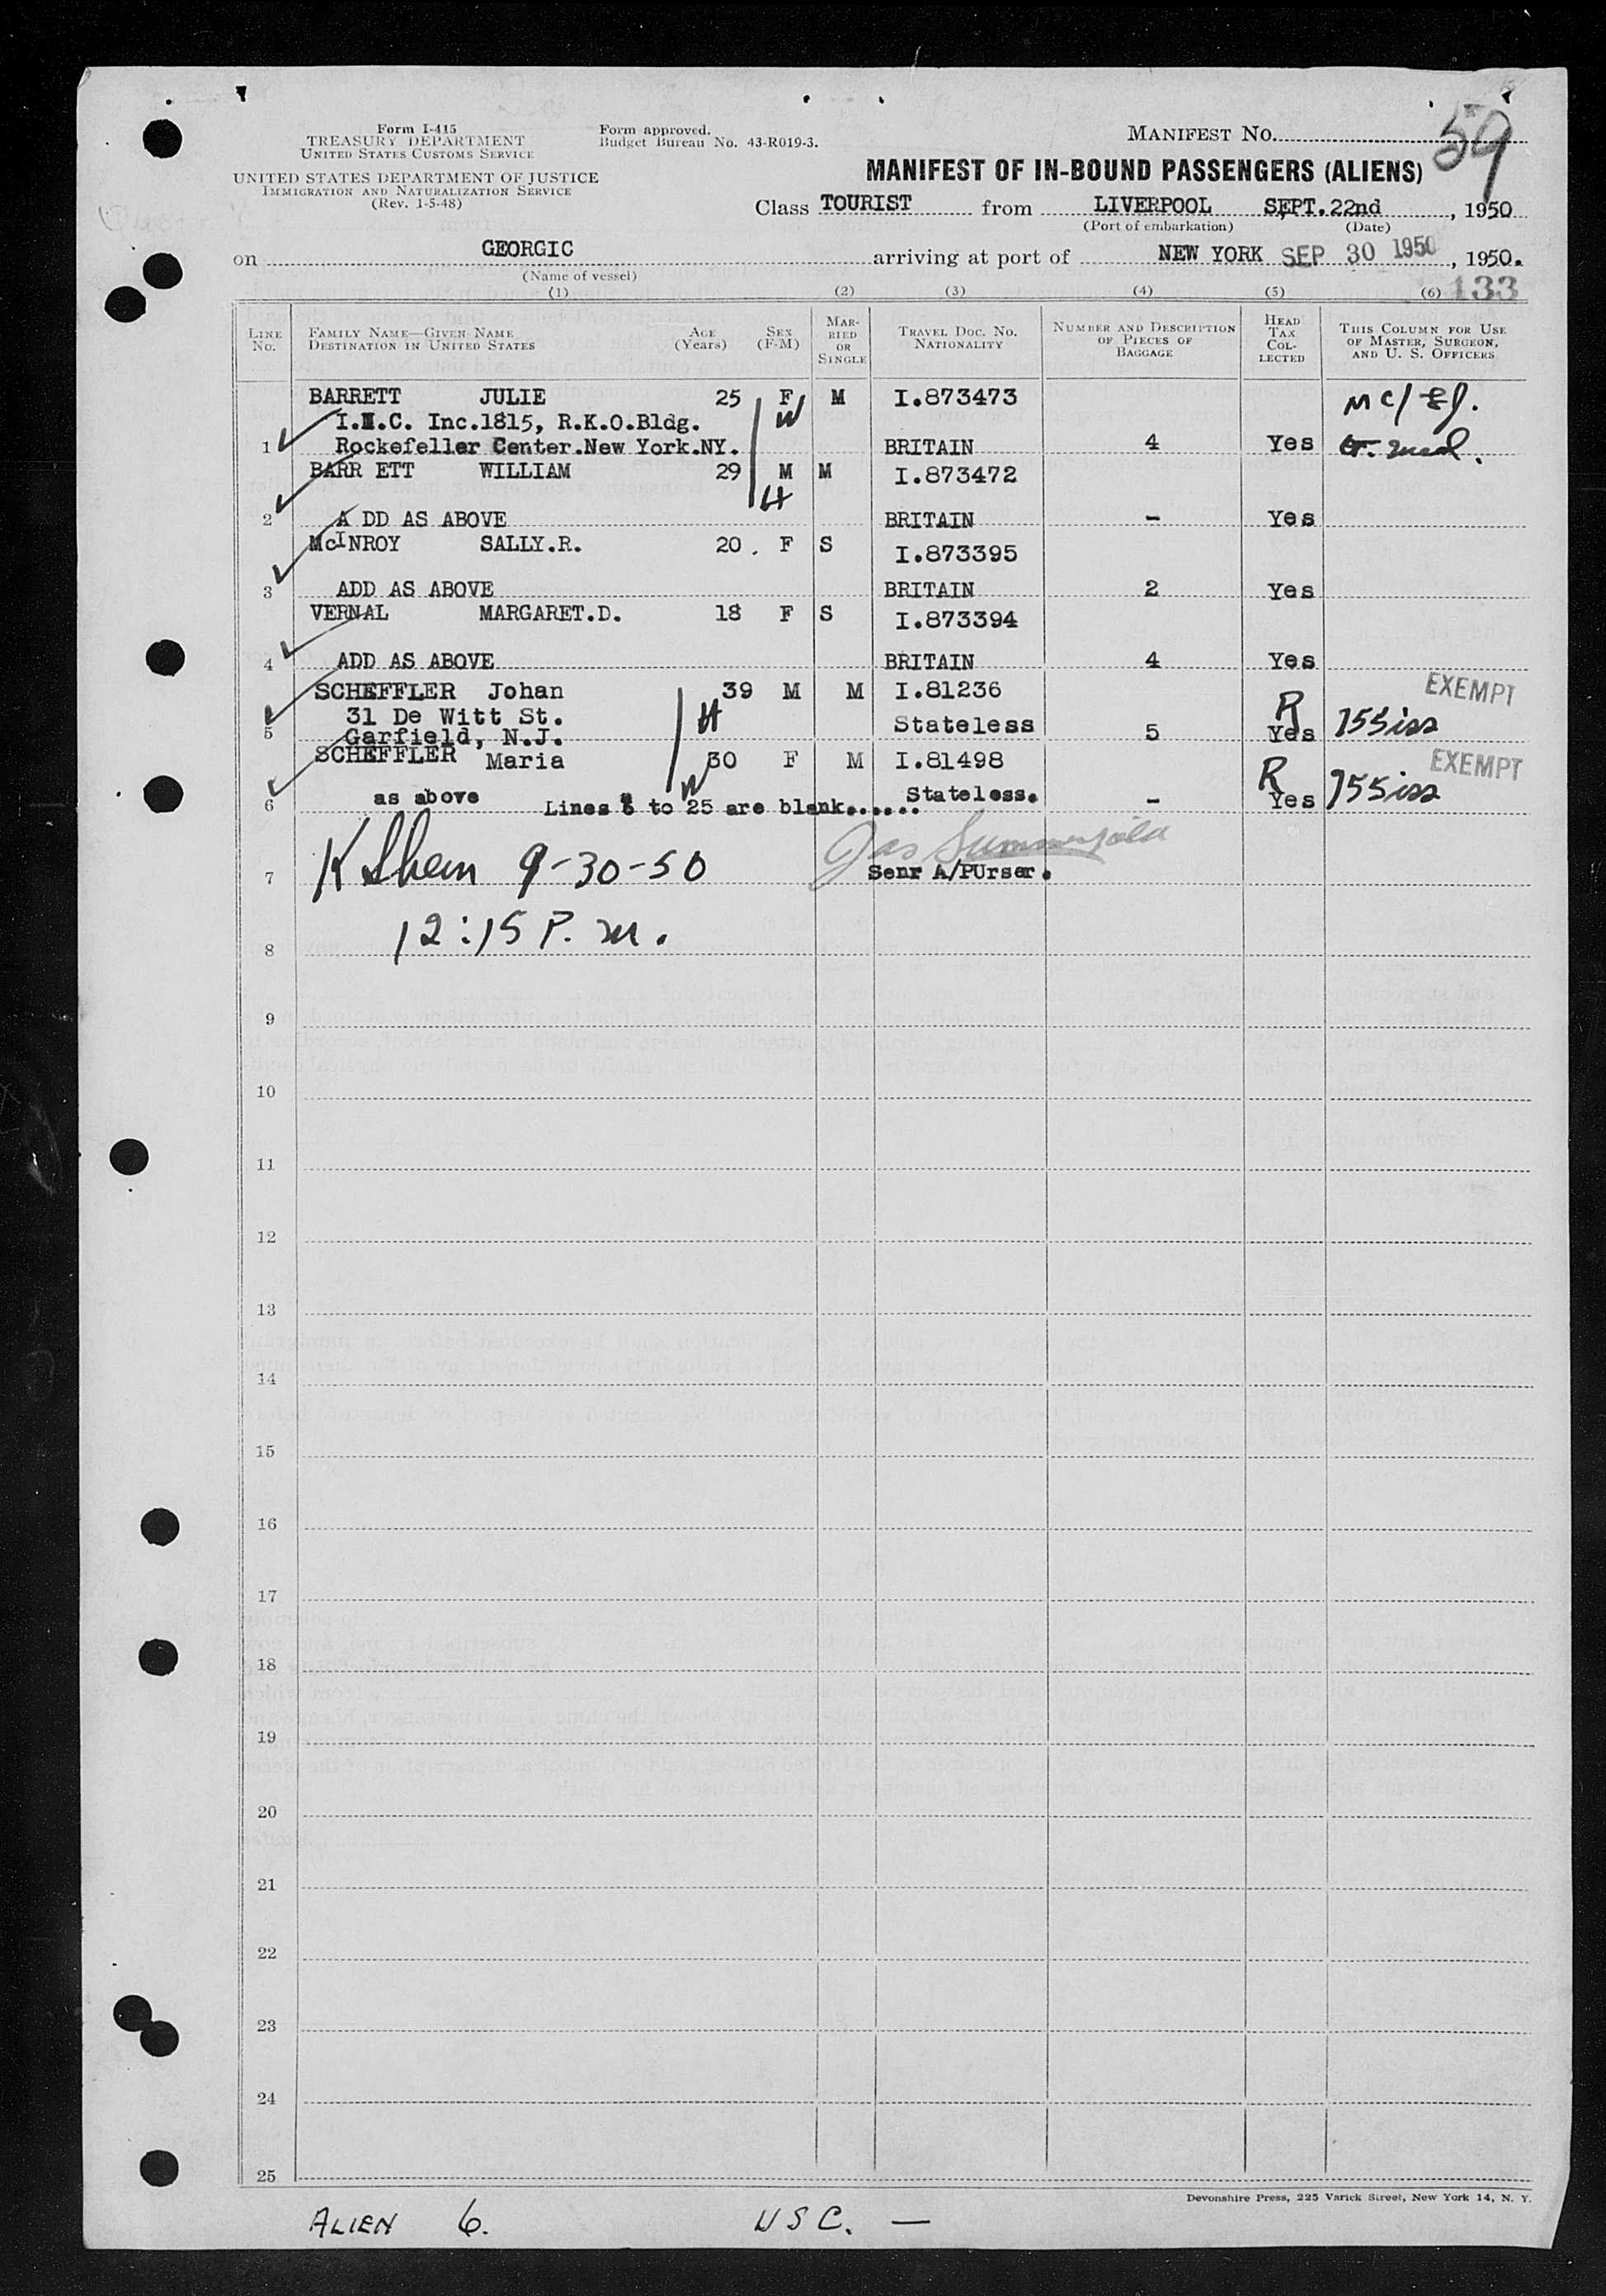 59
Form I-415
TREASURY DEPARTMENT
UNITED STATES CUSTOMS SERVICE
UNITED STATES DEPARTMENT OF JUSTICE
IMMIGRATION AND NATURALIZATION SERVICE
(Rev. 1-5-48)
Form approved.
Budget Bureau No. 43-R019-3.
MANIFEST NO.
MANIFEST OF IN-BOUND PASSENGERS (ALIENS)
Class TOURIST from LIVERPOOL SEPT.22nd, 1950
(Port of embarkation) (Date)
on GEORGIC arriving at port of NEW YORK SEP 30 1950, 1950.
(Name of vessel)
133
(1) (2) (3) (4) (5) (6)
LINE NO. FAMILY NAME—GIVEN NAME DESTINATION IN UNITED STATES AGE (Years) SEX (F-M) MARRIED OR SINGLE TRAVEL DOC. NO. NATIONALITY NUMBER AND DESCRIPTION OF PIECES OF BAGGAGE HEAD TAX COLLECTED THIS COLUMN FOR USE OF MASTER, SURGEON, AND U. S. OFFICERS
BARRETT JULIE 25 F M I.873473
W
Inc.1815, R.K.O.Bldg.
1 Rockefeller Center.New York.NY. BRITAIN 4 Yes
BARR ETT WILLIAM 29 M M I.873472
H
2 A DD AS ABOVE BRITAIN - Yes
McINROY SALLY.R. 20. F S I.873395
3 ADD AS ABOVE BRITAIN 2 Yes
VERNAL MARGARET.D. 18 F S I.873394
4 ADD AS ABOVE BRITAIN 4 Yes
SCHEFFLER Johan 39 M M I.81236 EXEMPT
31 De Witt St. H Stateless R
5 Garfield, N.J. 5 Yes
SCHEFFLER Maria 30 F M I.81498 EXEMPT
W R
6 as above Lines to 25 are blank...... Stateless. - Yes
7 9-30-50 Senr A/PUrser.
8 12:15 P.M.
9
10
11
12
13
14
15
16
17
18
19
20
21
22
23
24
25
Devonshire Press, 225 Varick Street, New York 14, N. Y.
ALIEN 6. USC. —